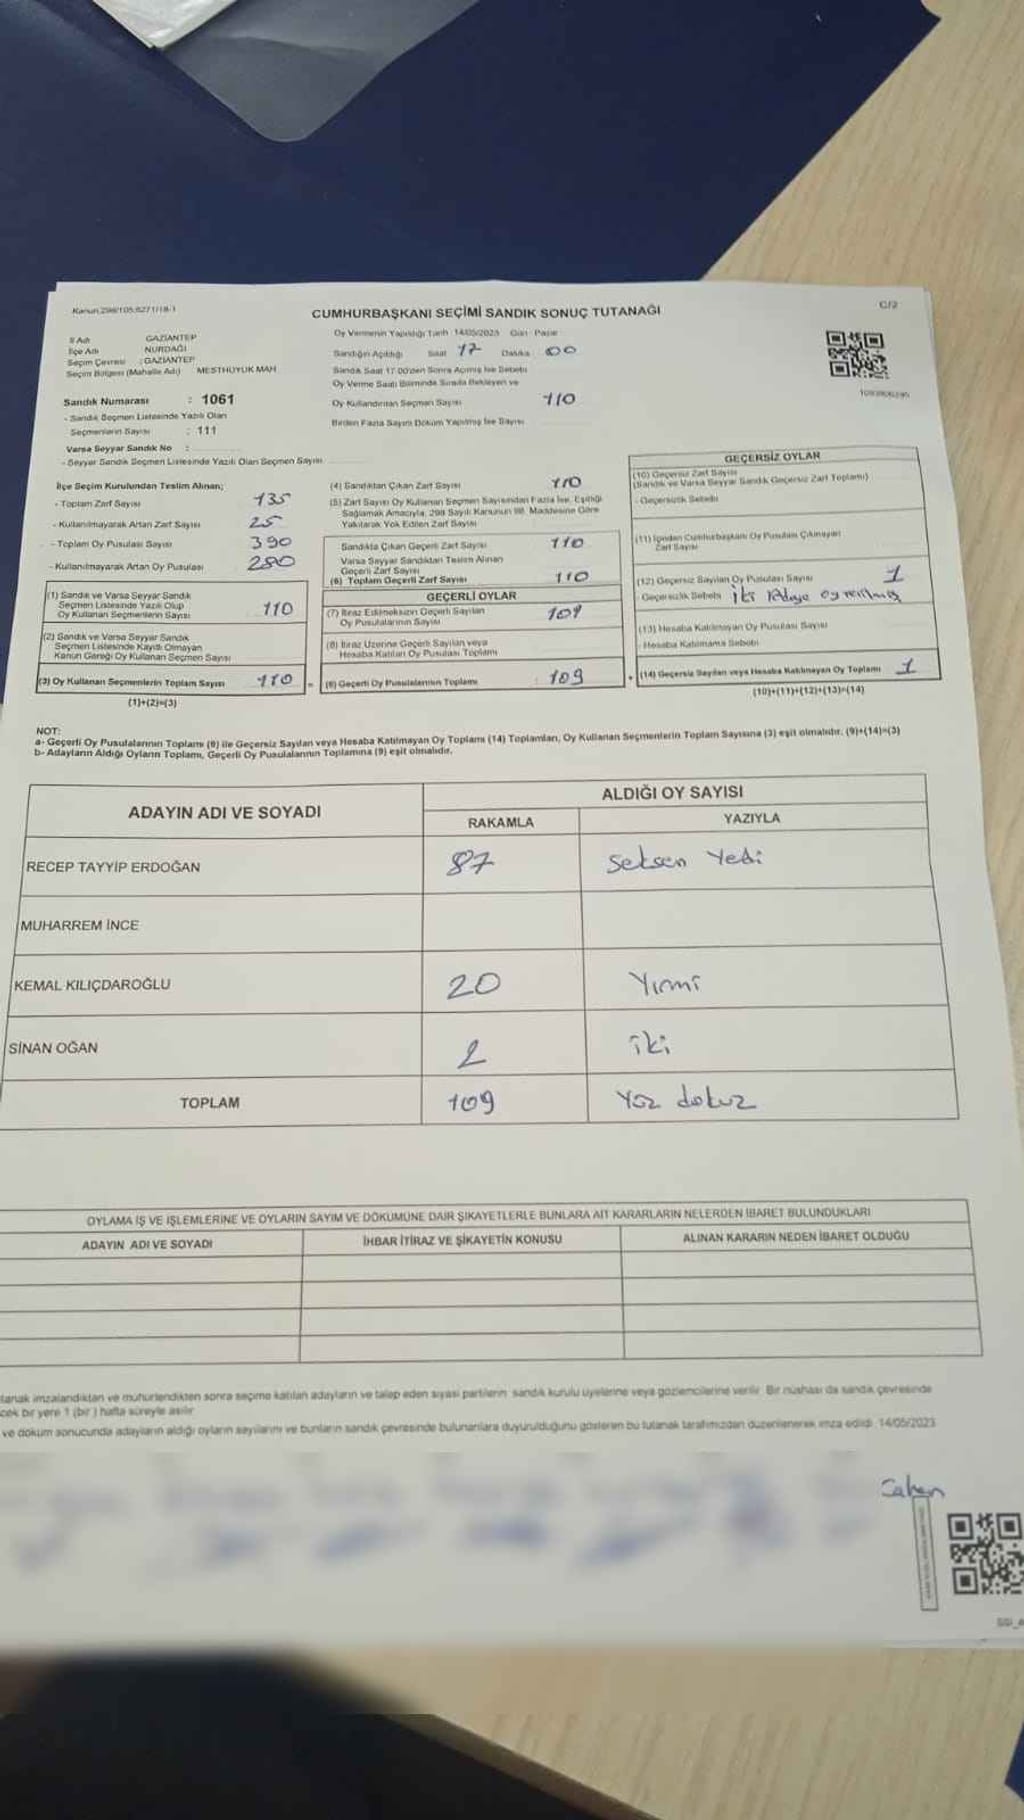 Kanun:298/105;6271/18-1
CUMHURBAŞKANI SEÇİMİ SANDIK SONUÇ TUTANAĞI
C/2
İl Adı GAZİANTEP
İlçe Adı NURDAĞI
Seçim Çevresi : GAZİANTEP
Seçim Bölgesi (Mahalle Adı) MESTHÜYÜK MAH.
Oy Vermenin Yapıldığı Tarih 14/05/2023 Gün : Pazar
Sandığın Açıldığı Saat 17 Dakika 00
Sandık Saat 17.00'den Sonra Açılmış İse Sebebi
Oy Verme Saati Bitiminde Sırada Bekleyen ve
Oy Kullandırılan Seçmen Sayısı 110
Birden Fazla Sayım Döküm Yapılmış İse Sayısı
Sandık Numarası : 1061
- Sandık Seçmen Listesinde Yazılı Olan
Seçmenlerin Sayısı : 111
Varsa Seyyar Sandık No :
- Seyyar Sandık Seçmen Listesinde Yazılı Olan Seçmen Sayısı
İlçe Seçim Kurulundan Teslim Alınan;
- Toplam Zarf Sayısı 135
- Kullanılmayarak Artan Zarf Sayısı 25
- Toplam Oy Pusulası Sayısı 390
- Kullanılmayarak Artan Oy Pusulası 280
(1) Sandık ve Varsa Seyyar Sandık
Seçmen Listesinde Yazılı Olup
Oy Kullanan Seçmenlerin Sayısı 110
(2) Sandık ve Varsa Seyyar Sandık
Seçmen Listesinde Kayıtlı Olmayan
Kanun Gereği Oy Kullanan Seçmen Sayısı
(3) Oy Kullanan Seçmenlerin Toplam Sayısı 110 =
(1)+(2)=(3)
(4) Sandıktan Çıkan Zarf Sayısı 110
(5) Zarf Sayısı Oy Kullanan Seçmen Sayısından Fazla İse, Eşitliği
Sağlamak Amacıyla, 298 Sayılı Kanunun 98. Maddesine Göre
Yakılarak Yok Edilen Zarf Sayısı
Sandıkta Çıkan Geçerli Zarf Sayısı 110
Varsa Seyyar Sandıktan Teslim Alınan
Geçerli Zarf Sayısı
(6) Toplam Geçerli Zarf Sayısı 110
GEÇERLİ OYLAR
(7) İtiraz Edilmeksizin Geçerli Sayılan
Oy Pusulalarının Sayısı 109
(8) İtiraz Üzerine Geçerli Sayılan veya
Hesaba Katılan Oy Pusulası Toplamı
(9) Geçerli Oy Pusulalarının Toplamı : 109 +
GEÇERSİZ OYLAR
(10) Geçersiz Zarf Sayısı
(Sandık ve Varsa Seyyar Sandık Geçersiz Zarf Toplamı)
- Geçersizlik Sebebi
(11) İçinden Cumhurbaşkanı Oy Pusulası Çıkmayan
Zarf Sayısı
(12) Geçersiz Sayılan Oy Pusulası Sayısı 1
- Geçersizlik Sebebi iki Adaya oy verilmiş
(13) Hesaba Katılmayan Oy Pusulası Sayısı
- Hesaba Katılmama Sebebi
(14) Geçersiz Sayılan veya Hesaba Katılmayan Oy Toplamı 1
(10)+(11)+(12)+(13)=(14)
NOT:
a- Geçerli Oy Pusulalarının Toplamı (9) ile Geçersiz Sayılan veya Hesaba Katılmayan Oy Toplamı (14) Toplamları, Oy Kullanan Seçmenlerin Toplam Sayısına (3) eşit olmalıdır. (9)+(14)=(3)
b- Adayların Aldığı Oyların Toplamı, Geçerli Oy Pusulalarının Toplamına (9) eşit olmalıdır.
ADAYIN ADI VE SOYADI
ALDIĞI OY SAYISI
RAKAMLA YAZIYLA
RECEP TAYYİP ERDOĞAN 87 Seksen Yedi
MUHARREM İNCE
KEMAL KILIÇDAROĞLU 20 Yirmi
SİNAN OĞAN 2 iki
TOPLAM 109 Yüz dokuz
OYLAMA İŞ VE İŞLEMLERİNE VE OYLARIN SAYIM VE DÖKÜMÜNE DAİR ŞİKAYETLERLE BUNLARA AİT KARARLARIN NELERDEN İBARET BULUNDUKLARI
ADAYIN ADI VE SOYADI İHBAR İTİRAZ VE ŞİKAYETİN KONUSU ALINAN KARARIN NEDEN İBARET OLDUĞU
tanak imzalandıktan ve mühürlendikten sonra seçime katılan adayların ve talep eden siyasi partilerin sandık kurulu üyelerine veya gözlemcilerine verilir. Bir nüshası da sandık çevresinde
cek bir yere 1 (bir ) hafta süreyle asılır.
ve döküm sonucunda adayların aldığı oyların sayılarını ve bunların sandık çevresinde bulunanlara duyurulduğunu gösteren bu tutanak tarafımızdan düzenlenerek imza edildi. 14/05/2023